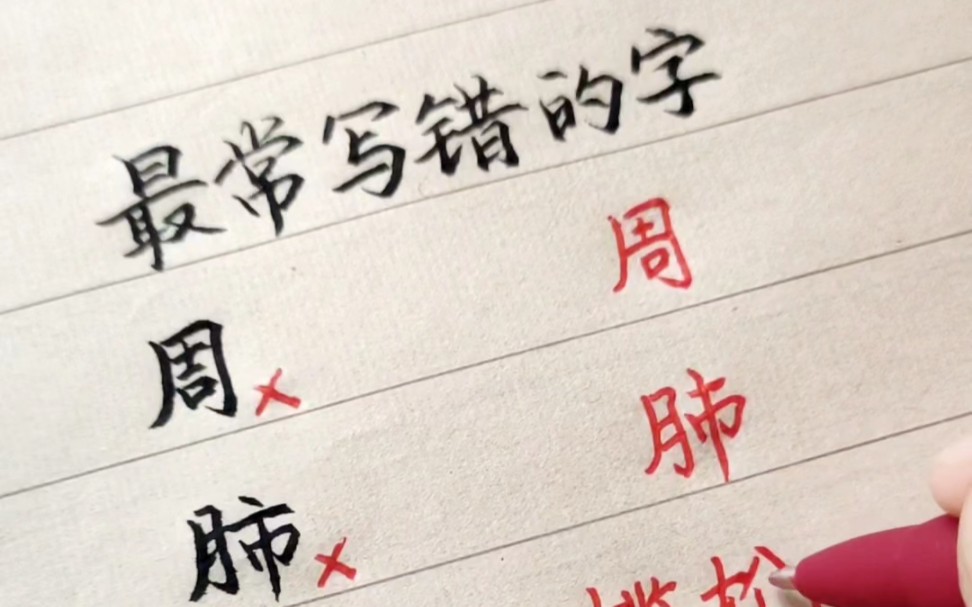 最常写错的字
周× 周
肺× 肺